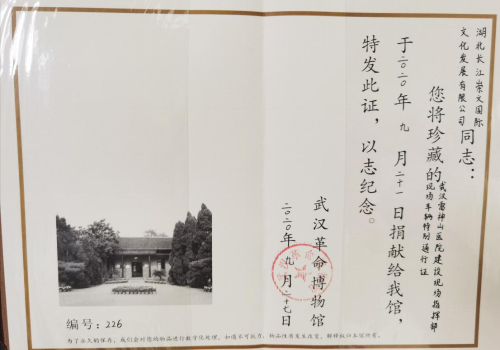 湖北长江崇文国际
文化发展有限公司同志：
您将珍藏的武汉雷神山医院建设现场指挥部
现场车辆特别通行证
于二〇二〇年九月二十一日捐献给我馆，
特发此证，以志纪念。
武汉革命博物馆
二〇二〇年九月二十七日
编号：226
为了永久的保存，我们会对您的物品进行数字化处理。如遇不可抗力，物品性质发生改变，解释权归本馆所有。